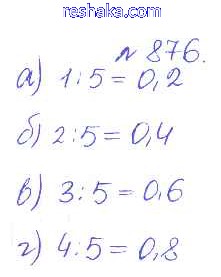 reshaka.com
№ 876.
а) 1:5 = 0,2
б) 2:5 = 0,4
в) 3:5 = 0,6
г) 4:5 = 0,8